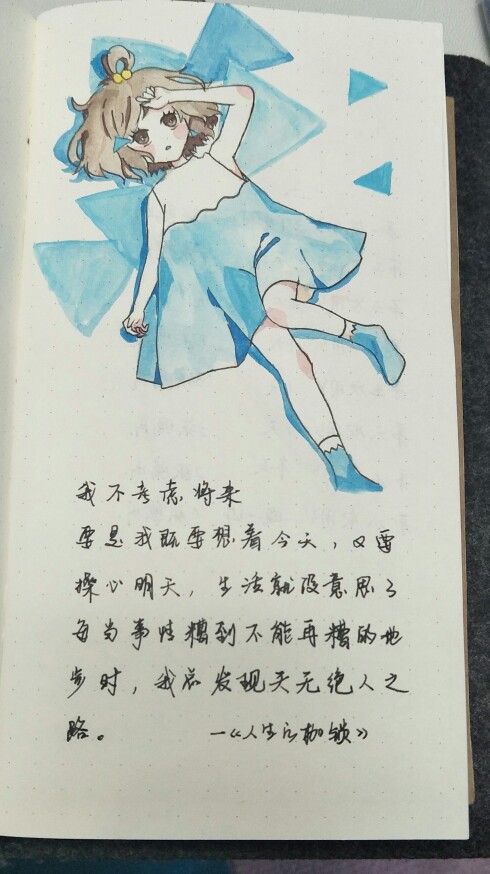 我不考虑将来
要是我既要想着今天，又要
操心明天，生活就没意思了
每当事情糟到不能再糟的地
步时，我总发现天无绝人之
路。 —《人生的枷锁》